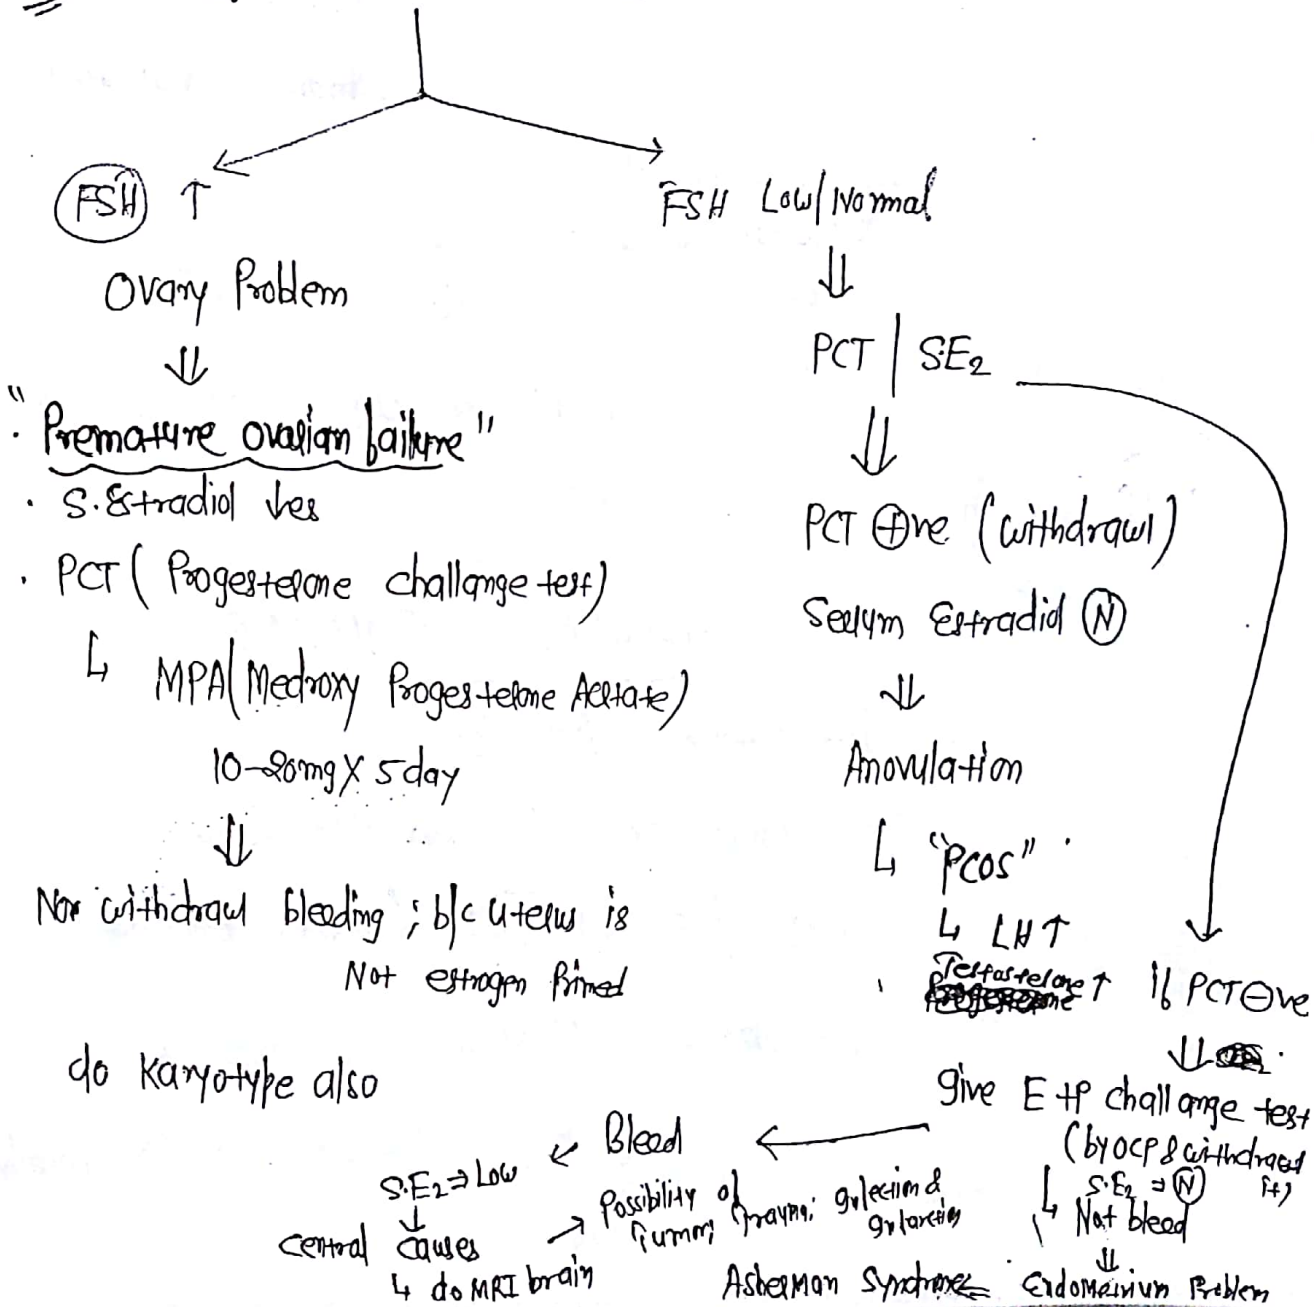 FSH ↑
Ovary Problem
⇓
"Premature ovarian failure"
· S. Estradiol ↓es
· PCT ( Progesterone challange test)
↳ MPA (Medroxy Progesterone Acetate)
10-20mg X 5 day
⇓
withdrawl bleeding ; b/c uterus is
Not estrogen Primed
do Karyotype also
FSH Low/Normal
⇓
PCT | S.E2
⇓
PCT ⊕ve (withdrawl)
Serum Estradiol Ⓝ
⇓
Anovulation
↳ "PCOS"
↳ LH ↑
Testosterone ↑
If PCT ⊖ve
⇓
give E+P challange test
(by OCP & withdrawl it)
↳ S.E2 = Ⓝ
Not bleed
⇓
Endometrium Problem
Asherman Syndrome
Bleed
S.E2 ⇒ Low
↓
Central causes
↳ do MRI brain
Possibility of
Tumor, Trauma, infection &
infarction